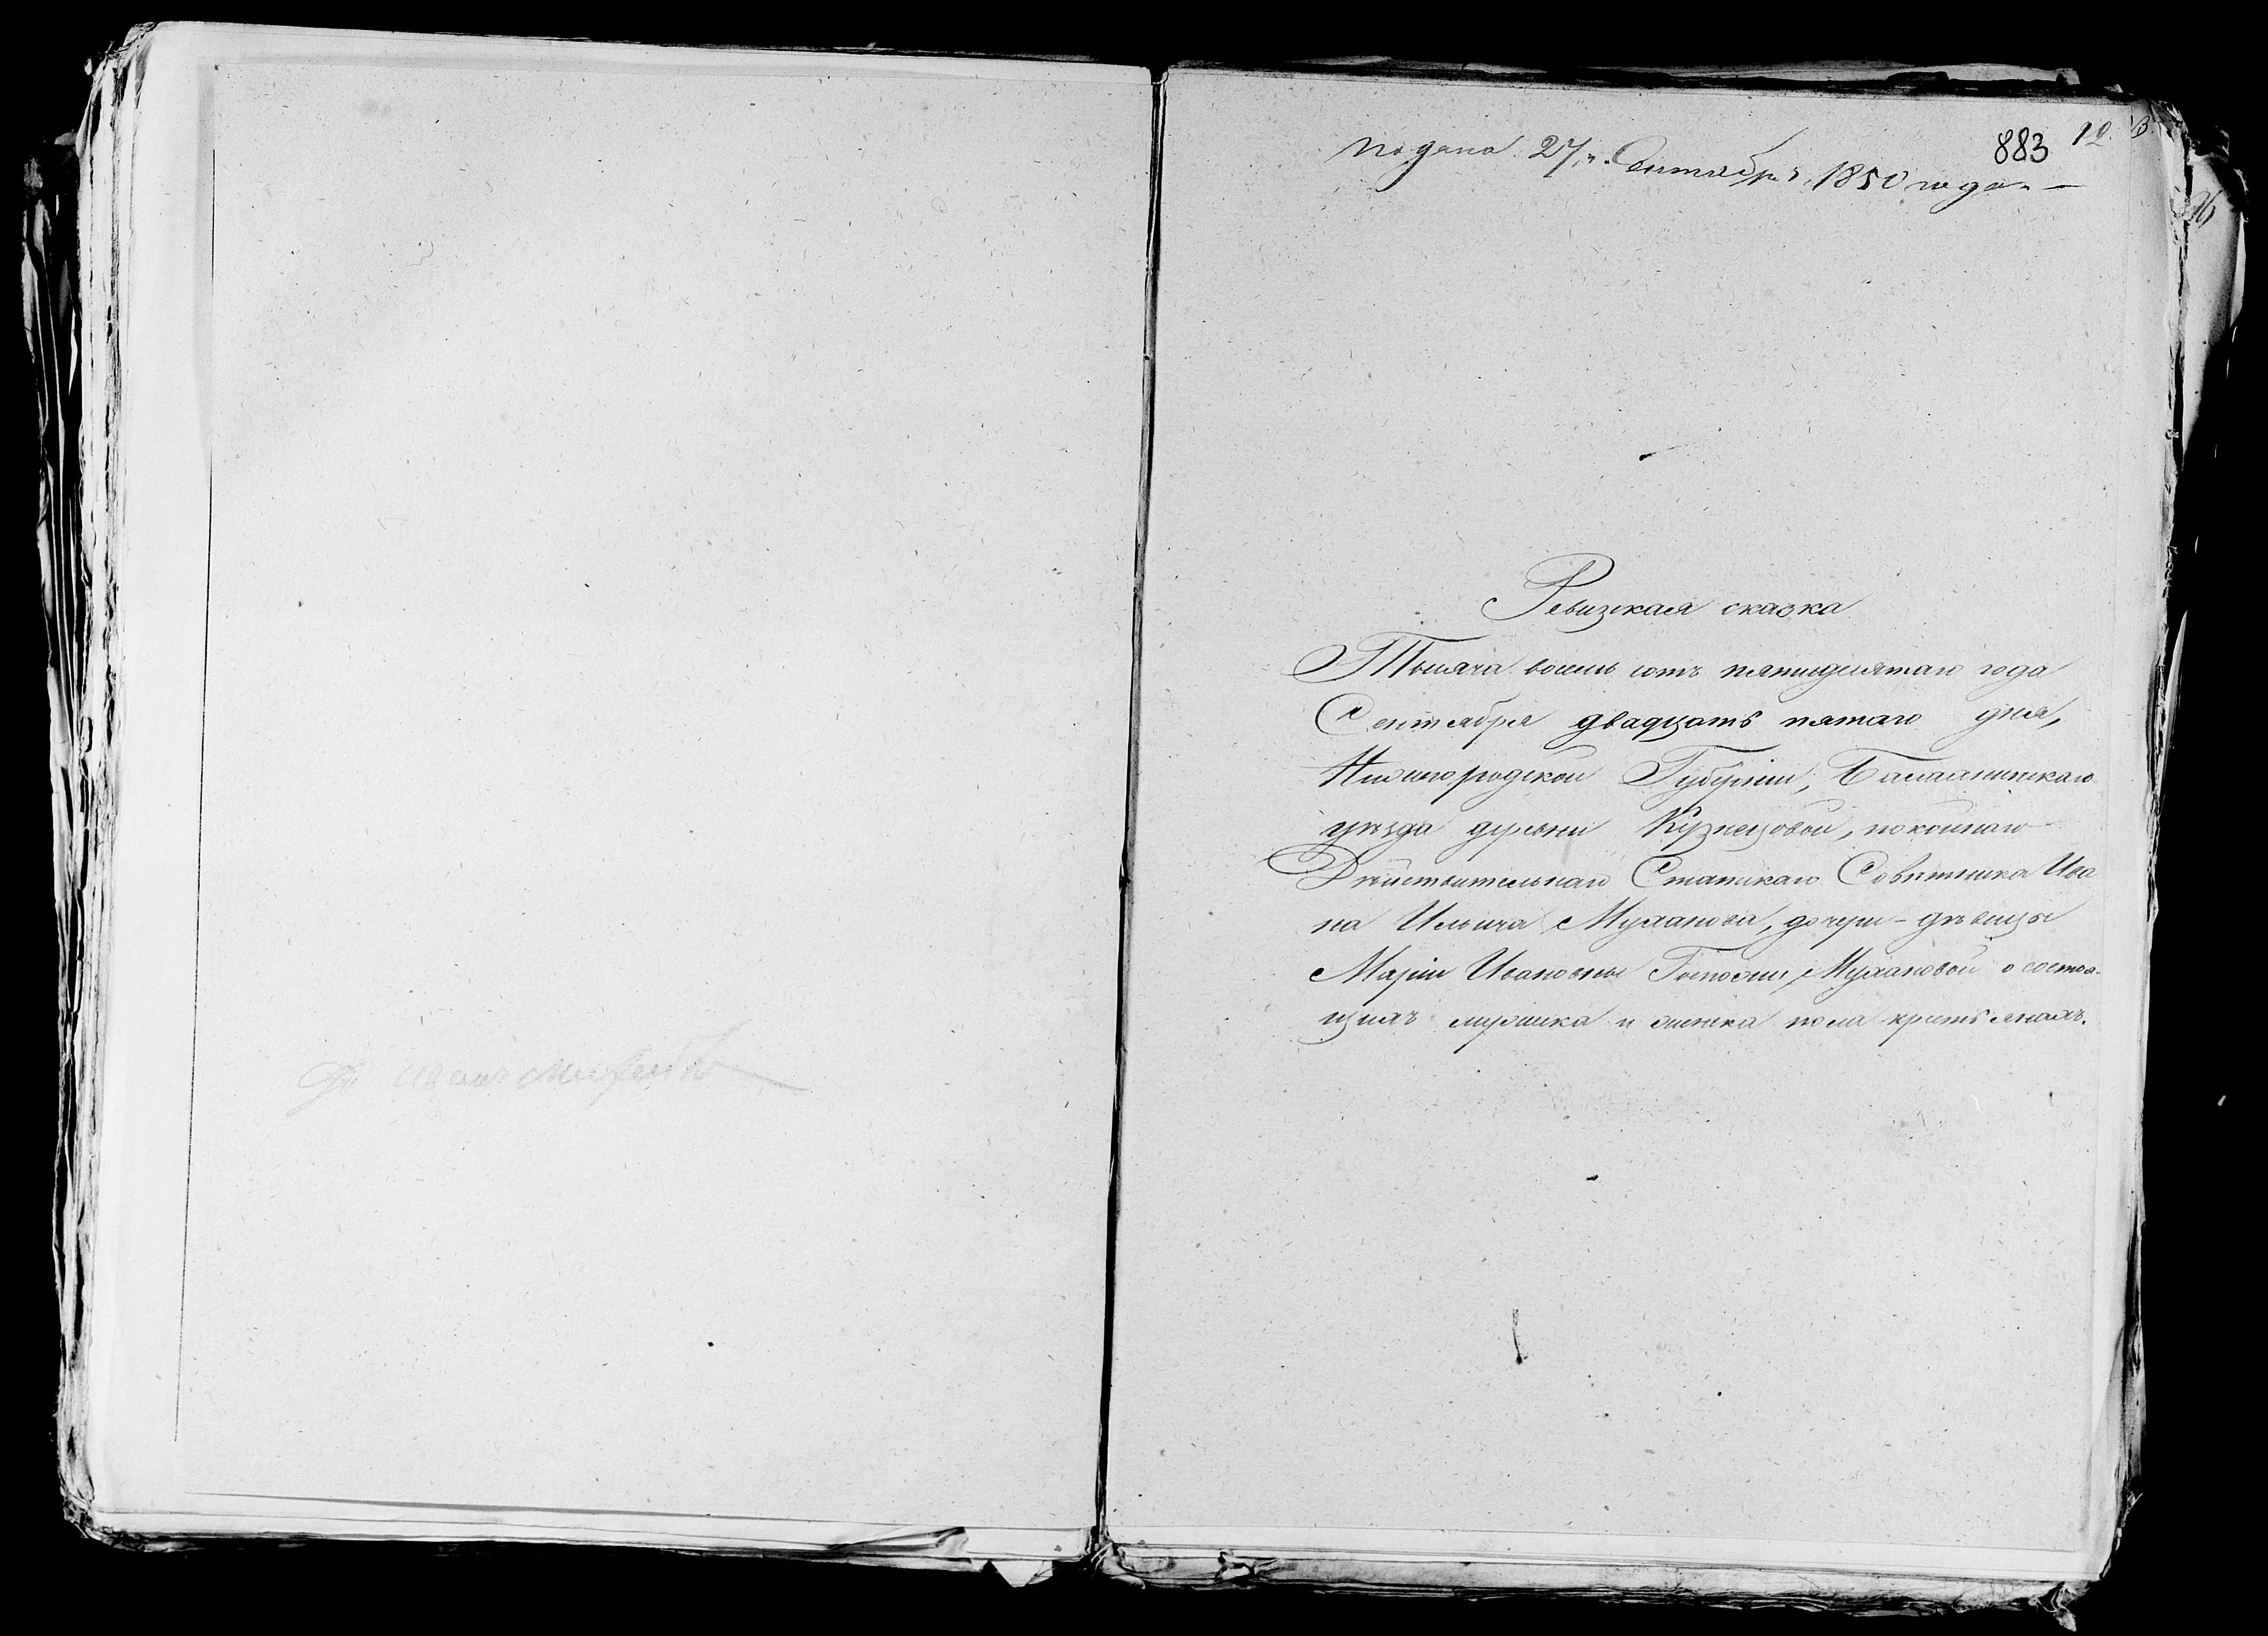 подана 27го Сентября 1850 года.
883
Ревизская сказка
Тысяча восемь сотъ пятидесятаго года
Сентября двадцать пятаго дня,
Нижегородской Губерніи, Балахнинскаго
уѣзда деревни Кузнецовой, покойнаго
Дѣйствительнаго Статскаго Совѣтника Ива
на Ильича Муханова, дочери - дѣвицы
Маріи Ивановны Госпожи Мухановой о состоя-
щихъ мужеска и женска пола крестьянахъ.